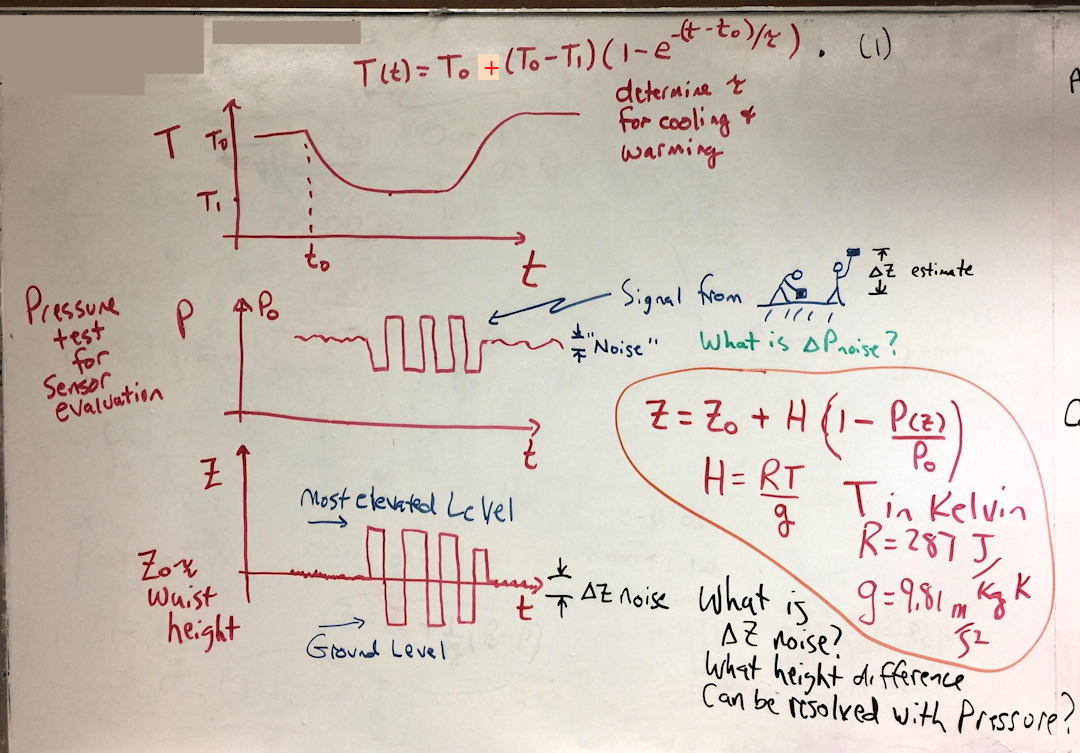 T(t) = T₀ + (T₀-T₁)(1-e^-(t-t₀)/τ). (1)
determine τ
for cooling &
warming
T
T₀
T₁
t₀
t
Pressure
test
for
sensor
evaluation
P
P₀
Signal from
ΔZ estimate
"Noise"
What is ΔPnoise?
t
Z = Z₀ + H (1 - P(z)/P₀)
H = RT/g
T in Kelvin
R = 287 J/kg K
g = 9.81 m/s²
Z
Most elevated Level
Z₀ ≈
Waist
height
t
ΔZ noise
Ground Level
What is
ΔZ noise?
What height difference
Can be resolved with Pressure?
A